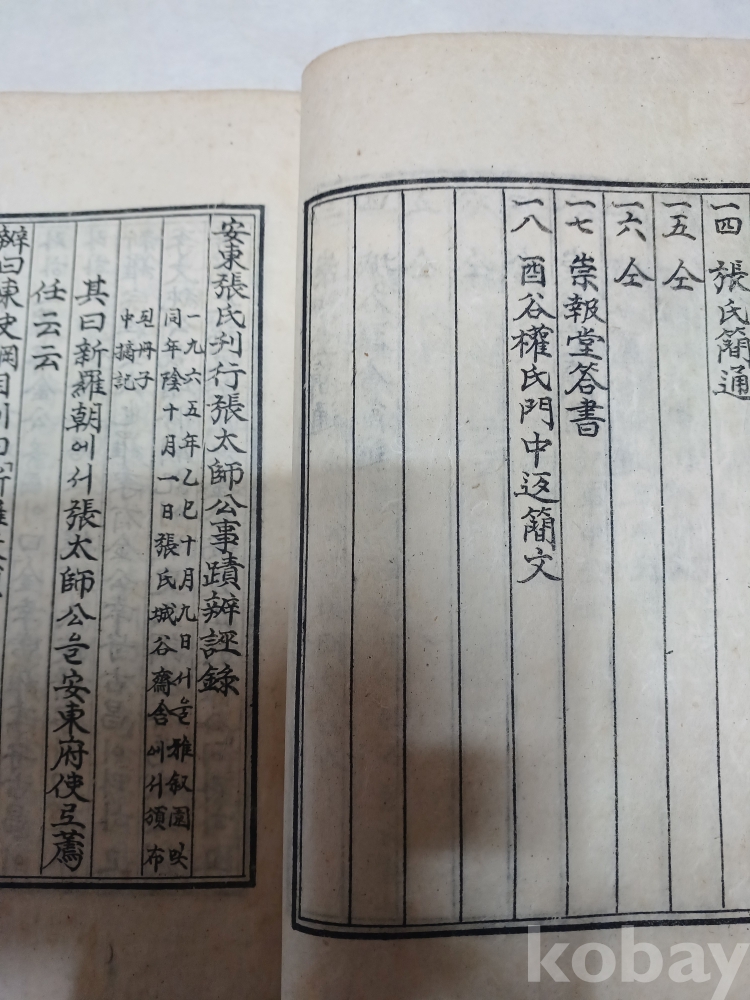 一四 張氏簡通
一五 仝
一六 仝
一七 崇報堂答書
一八 酉谷權氏門中返簡文
安東張氏刊行張太師公事蹟辨誣錄
一九六五年乙巳十月九日서울雅叙園및
同年陰十月一日張氏城谷齋舍에서頒布
된冊子
中摘記
其曰新羅朝에서張太師公을安東府使로薦
任云云
辨曰東史綱目
kobay